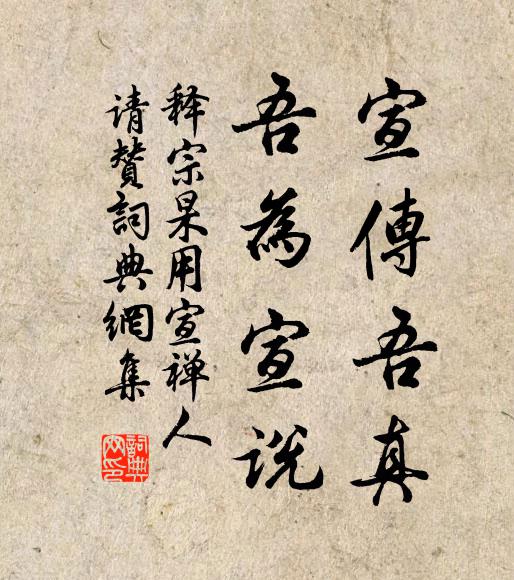 宣傳吾真
吾為宣説
释宗杲用宣禅人
请赞詞典網集
詞典网印